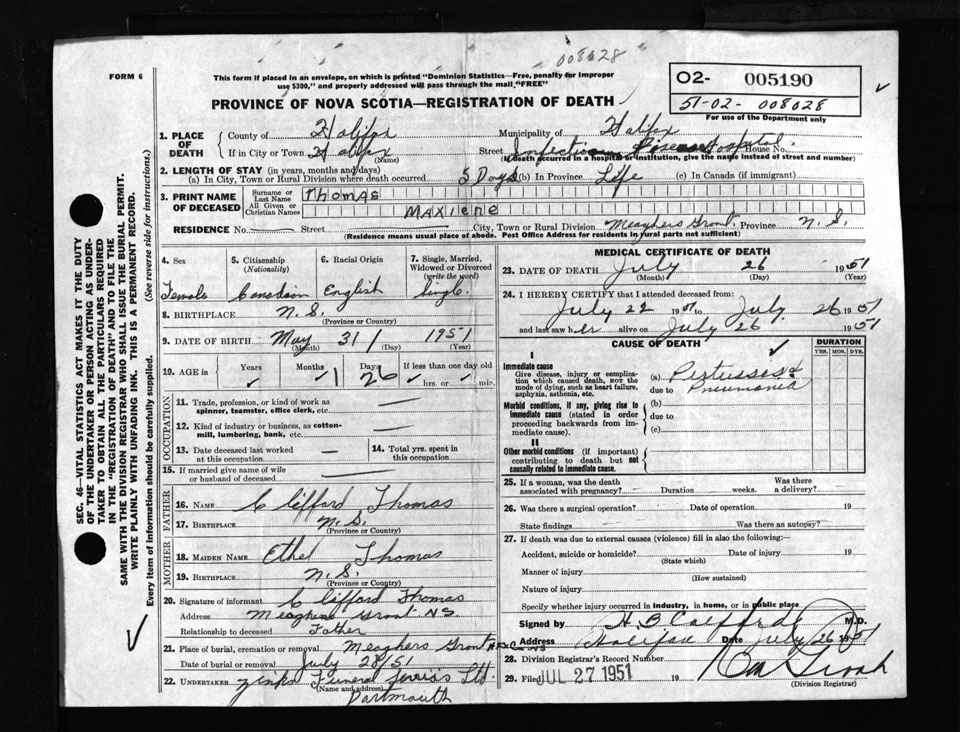 008028
FORM 6
This form if placed in an envelope, on which is printed "Dominion Statistics—Free, penalty for improper
use $300," and properly addressed will pass through the mail, "FREE"
O2- 005190
51-02- 008028
For use of the Department only
PROVINCE OF NOVA SCOTIA—REGISTRATION OF DEATH
1. PLACE OF DEATH
County of Halifax
Municipality of Halifax
If in City or Town Halifax (Name)
Street Infectious Disease Hospital House No.
(If death occurred in a hospital or institution, give the name instead of street and number)
2. LENGTH OF STAY (in years, months and days)
(a) In City, Town or Rural Division where death occurred 5 Days (b) In Province Life (c) In Canada (if immigrant)
3. PRINT NAME OF DECEASED
Surname or Last Name Thomas
All Given or Christian Names Maxiene
RESIDENCE No. Street City, Town or Rural Division Meaghers Grant. Province N. S.
(Residence means usual place of abode. Post Office Address for residents in rural parts not sufficient)
4. Sex
5. Citizenship (Nationality)
6. Racial Origin
7. Single, Married, Widowed or Divorced (write the word)
Female Canadain English Single
8. BIRTHPLACE N. S.
(Province or Country)
9. DATE OF BIRTH May 31 1951
(Month) (Day) (Year)
10. AGE in Years Months Days If less than one day old
1 26 hrs. or min.
OCCUPATION
11. Trade, profession, or kind of work as
spinner, teamster, office clerk, etc.
12. Kind of industry or business, as cotton-
mill, lumbering, bank, etc.
13. Date deceased last worked
at this occupation
14. Total yrs. spent in
this occupation
15. If married give name of wife
or husband of deceased
FATHER
16. NAME Clifford Thomas
17. BIRTHPLACE N. S.
(Province or Country)
MOTHER
18. MAIDEN NAME Ethel Thomas
19. BIRTHPLACE N. S.
(Province or Country)
20. Signature of informant Clifford Thomas
Address Meaghers Grant NS
Relationship to deceased Father
21. Place of burial, cremation or removal Meaghers Grant
Date of burial or removal July 28/51
22. UNDERTAKER Zinks Funeral Service Ltd.
(Name and address)
Dartmouth
MEDICAL CERTIFICATE OF DEATH
23. DATE OF DEATH July 26 1951
(Month) (Day) (Year)
24. I HEREBY CERTIFY that I attended deceased from:
July 22 1951 to July 26 1951
and last saw her alive on July 26 1951
CAUSE OF DEATH
DURATION
YRS. MOS. DYS.
I
Immediate cause
Give disease, injury or compli-
cation which caused death, NOT the
mode of dying, such as heart failure,
asphyxia, asthenia, etc.
(a) Pertussis &
due to Pneumonia
Morbid conditions, if any, giving rise to
immediate cause (stated in order
proceeding backwards from im-
mediate cause).
(b)
due to
(c)
II
Other morbid conditions (if important)
contributing to death but not
causally related to immediate cause.
25. If a woman, was the death
associated with pregnancy? Duration weeks. Was there
a delivery?
26. Was there a surgical operation? Date of operation 19
State findings Was there an autopsy?
27. If death was due to external causes (violence) fill in also the following:—
Accident, suicide or homicide? Date of injury 19
(State which)
Manner of injury
(How sustained)
Nature of injury
Specify whether injury occurred in industry, in home, or in public place
Signed by M.D.
Address Halifax Date July 26 1951
28. Division Registrar's Record Number
29. Filed JUL 27 1951 19
(Division Registrar)
SEC. 46—VITAL STATISTICS ACT MAKES IT THE DUTY
OF THE UNDERTAKER OR PERSON ACTING AS UNDER-
TAKER TO OBTAIN ALL THE PARTICULARS REQUIRED
IN THE "REGISTRATION OF DEATH" AND TO FILE THE
SAME WITH THE DIVISION REGISTRAR WHO SHALL ISSUE THE BURIAL PERMIT.
WRITE PLAINLY WITH UNFADING INK. THIS IS A PERMANENT RECORD.
Every item of information should be carefully supplied. (See reverse side for instructions.)